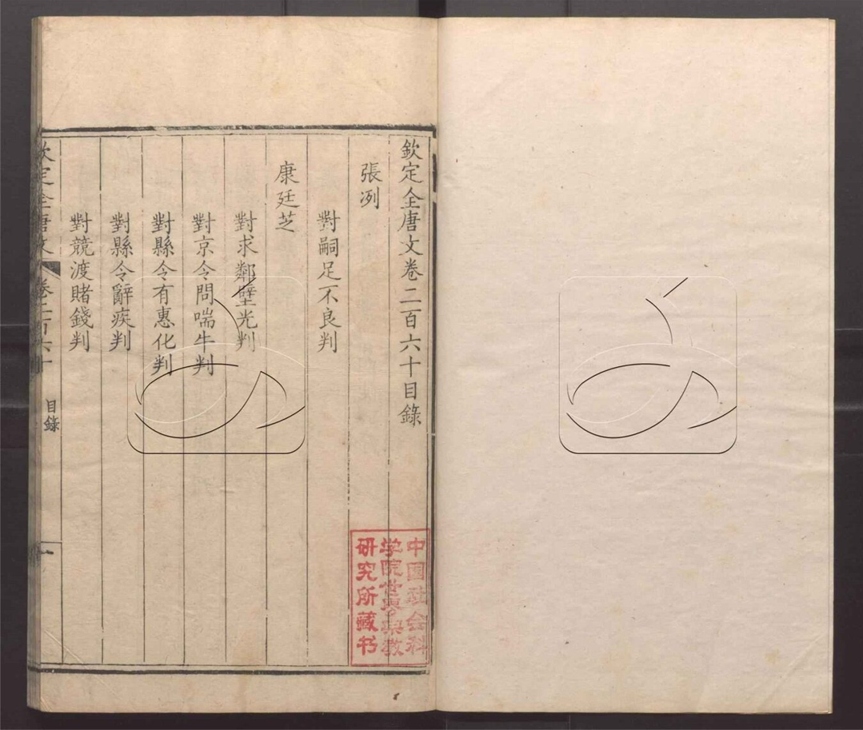 欽定全唐文卷二百六十目錄
張冽
對嗣足不良判
康廷芝
對求鄰壁光判
對京令問喘牛判
對縣令有惠化判
對縣令辭疾判
對競渡賭錢判
欽定全唐文
卷二百六十
目錄
一
中国社会科
学院世界宗教
研究所藏书